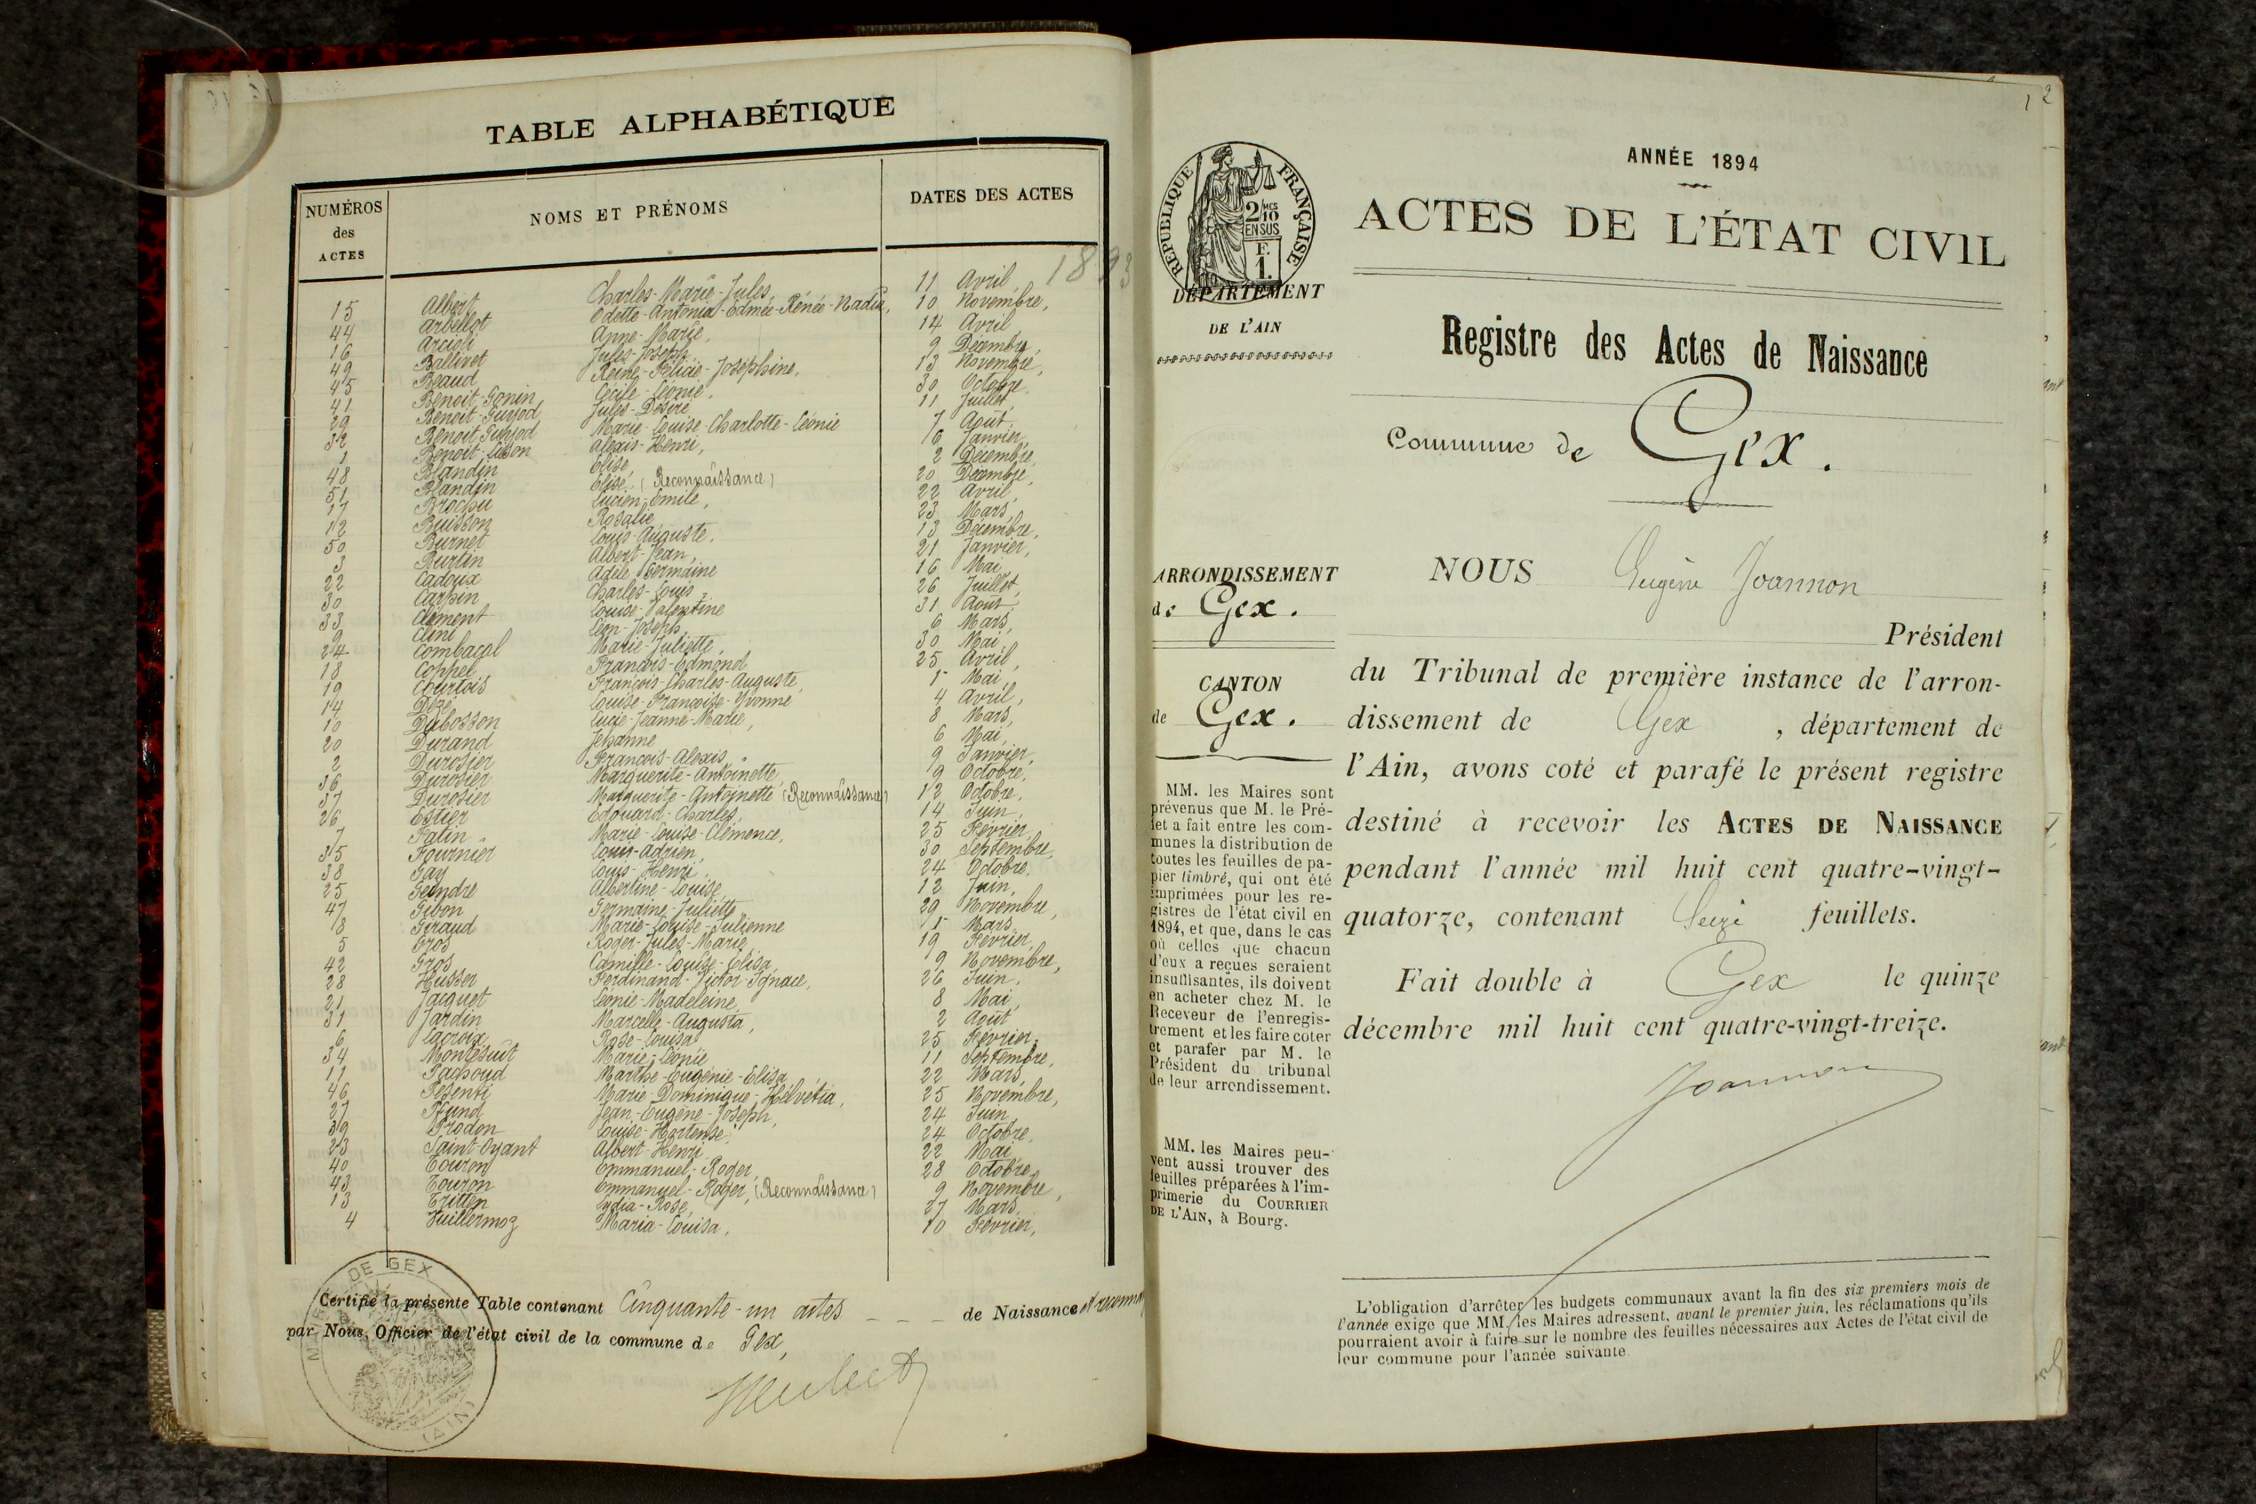 TABLE ALPHABÉTIQUE
NUMÉROS des ACTES NOMS ET PRÉNOMS DATES DES ACTES
1893
15 Albert Charles-Marie-Jules 11 Avril,
44 Arbellot Odette-Antonia-Edmée-Rénée-Nadia, 10 Novembre,
16 Arcioli Anne-Marie, 14 Avril
49 Ballivet Jules-Joseph 9 Décembre,
45 Beaud Reine-Félicie-Joséphine, 13 Novembre,
41 Benoit-Gonin Cécile-Léonie, 30 Octobre
29 Benoit-Guyod Jules-Désiré 11 Juillet,
32 Benoit-Guyod Marie-Louise-Charlotte-Léonie 7 Août,
1 Benoit-Lison Alexis-Henri, 6 Janvier,
48 Blandin Elise, 2 Décembre,
51 Blandin Elise, (Reconnaissance) 20 Décembre,
17 Brochu Lucien-Emile, 22 Avril,
12 Buisson Rosalie 23 Mars,
50 Burnet Louis-Auguste, 13 Décembre,
3 Burtin Albert-Jean, 21 Janvier,
22 Cadoux Adèle Germaine 16 Mai
30 Carpin Charles-Louis, 26 Juillet,
33 Clément Louise-Valentine 31 Août,
9 Clini Léon-Joseph, 6 Mars,
24 Combacal Marie-Juliette, 30 Mai,
18 Coppel François-Edmond 25 Avril,
19 Courtois François-Charles-Auguste, 1er Mai,
14 Dizé Louise-Françoise-Yvonne 4 Avril,
10 Dubosson Lucie-Jeanne-Marie, 8 Mars,
20 Durand Jehanne 6 Mai,
2 Durosier François-Alexis, 9 Janvier,
36 Durosier Marguerite-Antoinette, 9 Octobre,
37 Durosier Marguerite-Antoinette (Reconnaissance) 12 Octobre,
26 Estier Edouard-Charles, 14 Juin,
7 Fatin Marie-Louise-Clémence, 25 Février,
35 Fournier Louis-Adrien, 30 Septembre,
38 Gay Louis-Henri, 24 Octobre,
25 Geindre Albertine-Louise 12 Juin,
47 Gibon Germaine-Juliette, 29 Novembre,
8 Giraud Marie-Louise-Julienne 1er Mars,
5 Gros Roger-Jules-Marie, 19 Février,
42 Gros Camille-Louise-Elisa 9 Novembre,
28 Husser Ferdinand-Victor-Ignace, 26 Juin,
21 Jacquet Léonie-Madeleine, 8 Mai,
31 Jardin Marcelle-Augusta, 2 Août
6 Lacroix Rose-Louisa 25 Février,
34 Montésuit Marie-Léonie 11 Septembre,
11 Pachoud Marthe-Eugénie-Elisa 22 Mars,
46 Pesenti Marie-Dominique-Helvétia, 25 Novembre,
27 Pfund Jean-Eugène-Joseph, 24 Juin
39 Prodon Louise-Hortense, 24 Octobre,
23 Saint-Oyant Albert-Henri 22 Mai
40 Touron Emmanuel-Roger, 28 Octobre,
43 Touron Emmanuel-Roger, (Reconnaissance) 9 Novembre,
13 Tritten Lydia-Rose, 27 Mars,
4 Vuillermoz Maria-Louisa, 10 Février,
Certifié la présente Table contenant Cinquante-un actes de Naissance
par Nous, Officier de l'état civil de la commune de Gex,
DE GEX
(AIN)
1 2
RÉPUBLIQUE FRANÇAISE
2/10 MES
EN SUS
F.
1.
DÉPARTEMENT
DE L'AIN
ARRONDISSEMENT
de Gex.
CANTON
de Gex.
MM. les Maires sont
prévenus que M. le Pré-
fet a fait entre les com-
munes la distribution de
toutes les feuilles de pa-
pier timbré, qui ont été
imprimées pour les re-
gistres de l'état civil en
1894, et que, dans le cas
où celles que chacun
d'eux a reçues seraient
insuffisantes, ils doivent
en acheter chez M. le
Receveur de l'enregis-
trement et les faire coter
et parafer par M. le
Président du tribunal
de leur arrondissement.
MM. les Maires peu-
vent aussi trouver des
feuilles préparées à l'im-
primerie du COURRIER
DE L'AIN, à Bourg.
ANNÉE 1894
ACTES DE L'ÉTAT CIVIL
Registre des Actes de Naissance
Commune de Gex.
NOUS Eugène Joannon
Président
du Tribunal de première instance de l'arron-
dissement de Gex, département de
l'Ain, avons coté et parafé le présent registre
destiné à recevoir les ACTES DE NAISSANCE
pendant l'année mil huit cent quatre-vingt-
quatorze, contenant Seize feuillets.
Fait double à Gex le quinze
décembre mil huit cent quatre-vingt-treize.
Joannon
L'obligation d'arrêter les budgets communaux avant la fin des six premiers mois de
l'année exige que MM. les Maires adressent, avant le premier juin, les réclamations qu'ils
pourraient avoir à faire sur le nombre des feuilles nécessaires aux Actes de l'état civil de
leur commune pour l'année suivante